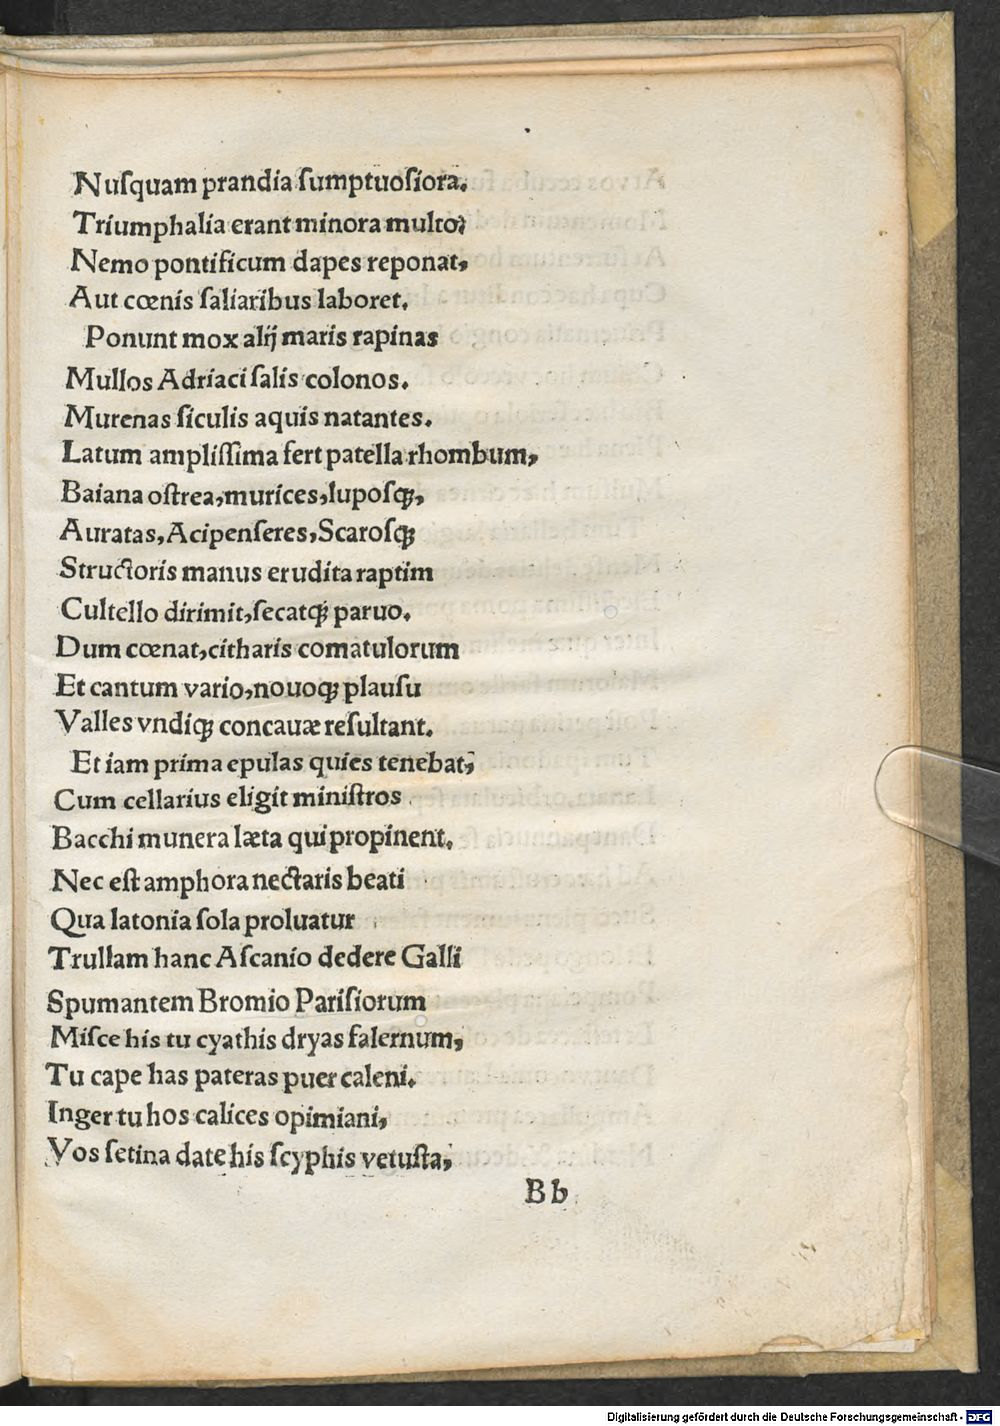 Nuſquam prandia ſumptuoſiora.
Triumphalia erant minora multo?
Nemo pontificum dapes reponat,
Aut cœnis ſaliaribus laboret.
Ponunt mox alij maris rapinas
Mullos Adriaci ſalis colonos.
Murenas ſiculis aquis natantes.
Latum ampliſſima fert patella rhombum,
Baiana oſtrea, murices, lupoſqꝫ,
Auratas, Acipenſeres, Scaroſqꝫ
Structoris manus erudita raptim
Cultello dirimit, ſecatqꝫ paruo.
Dum cœnat, citharis comatulorum
Et cantum vario, nouoqꝫ plauſu
Valles vndiqꝫ concauæ reſultant.
Et iam prima epulas quies tenebat,
Cum cellarius eligit miniſtros
Bacchi munera læta qui propinent.
Nec eſt amphora nectaris beati
Qua latonia ſola proluatur
Trullam hanc Aſcanio dedere Galli
Spumantem Bromio Pariſiorum
Miſce his tu cyathis dryas falernum,
Tu cape has pateras puer caleni.
Inger tu hos calices opimiani,
Vos ſetina date his ſcyphis vetuſta,
B b
Digitalisierung gefördert durch die Deutsche Forschungsgemeinschaft - DFG